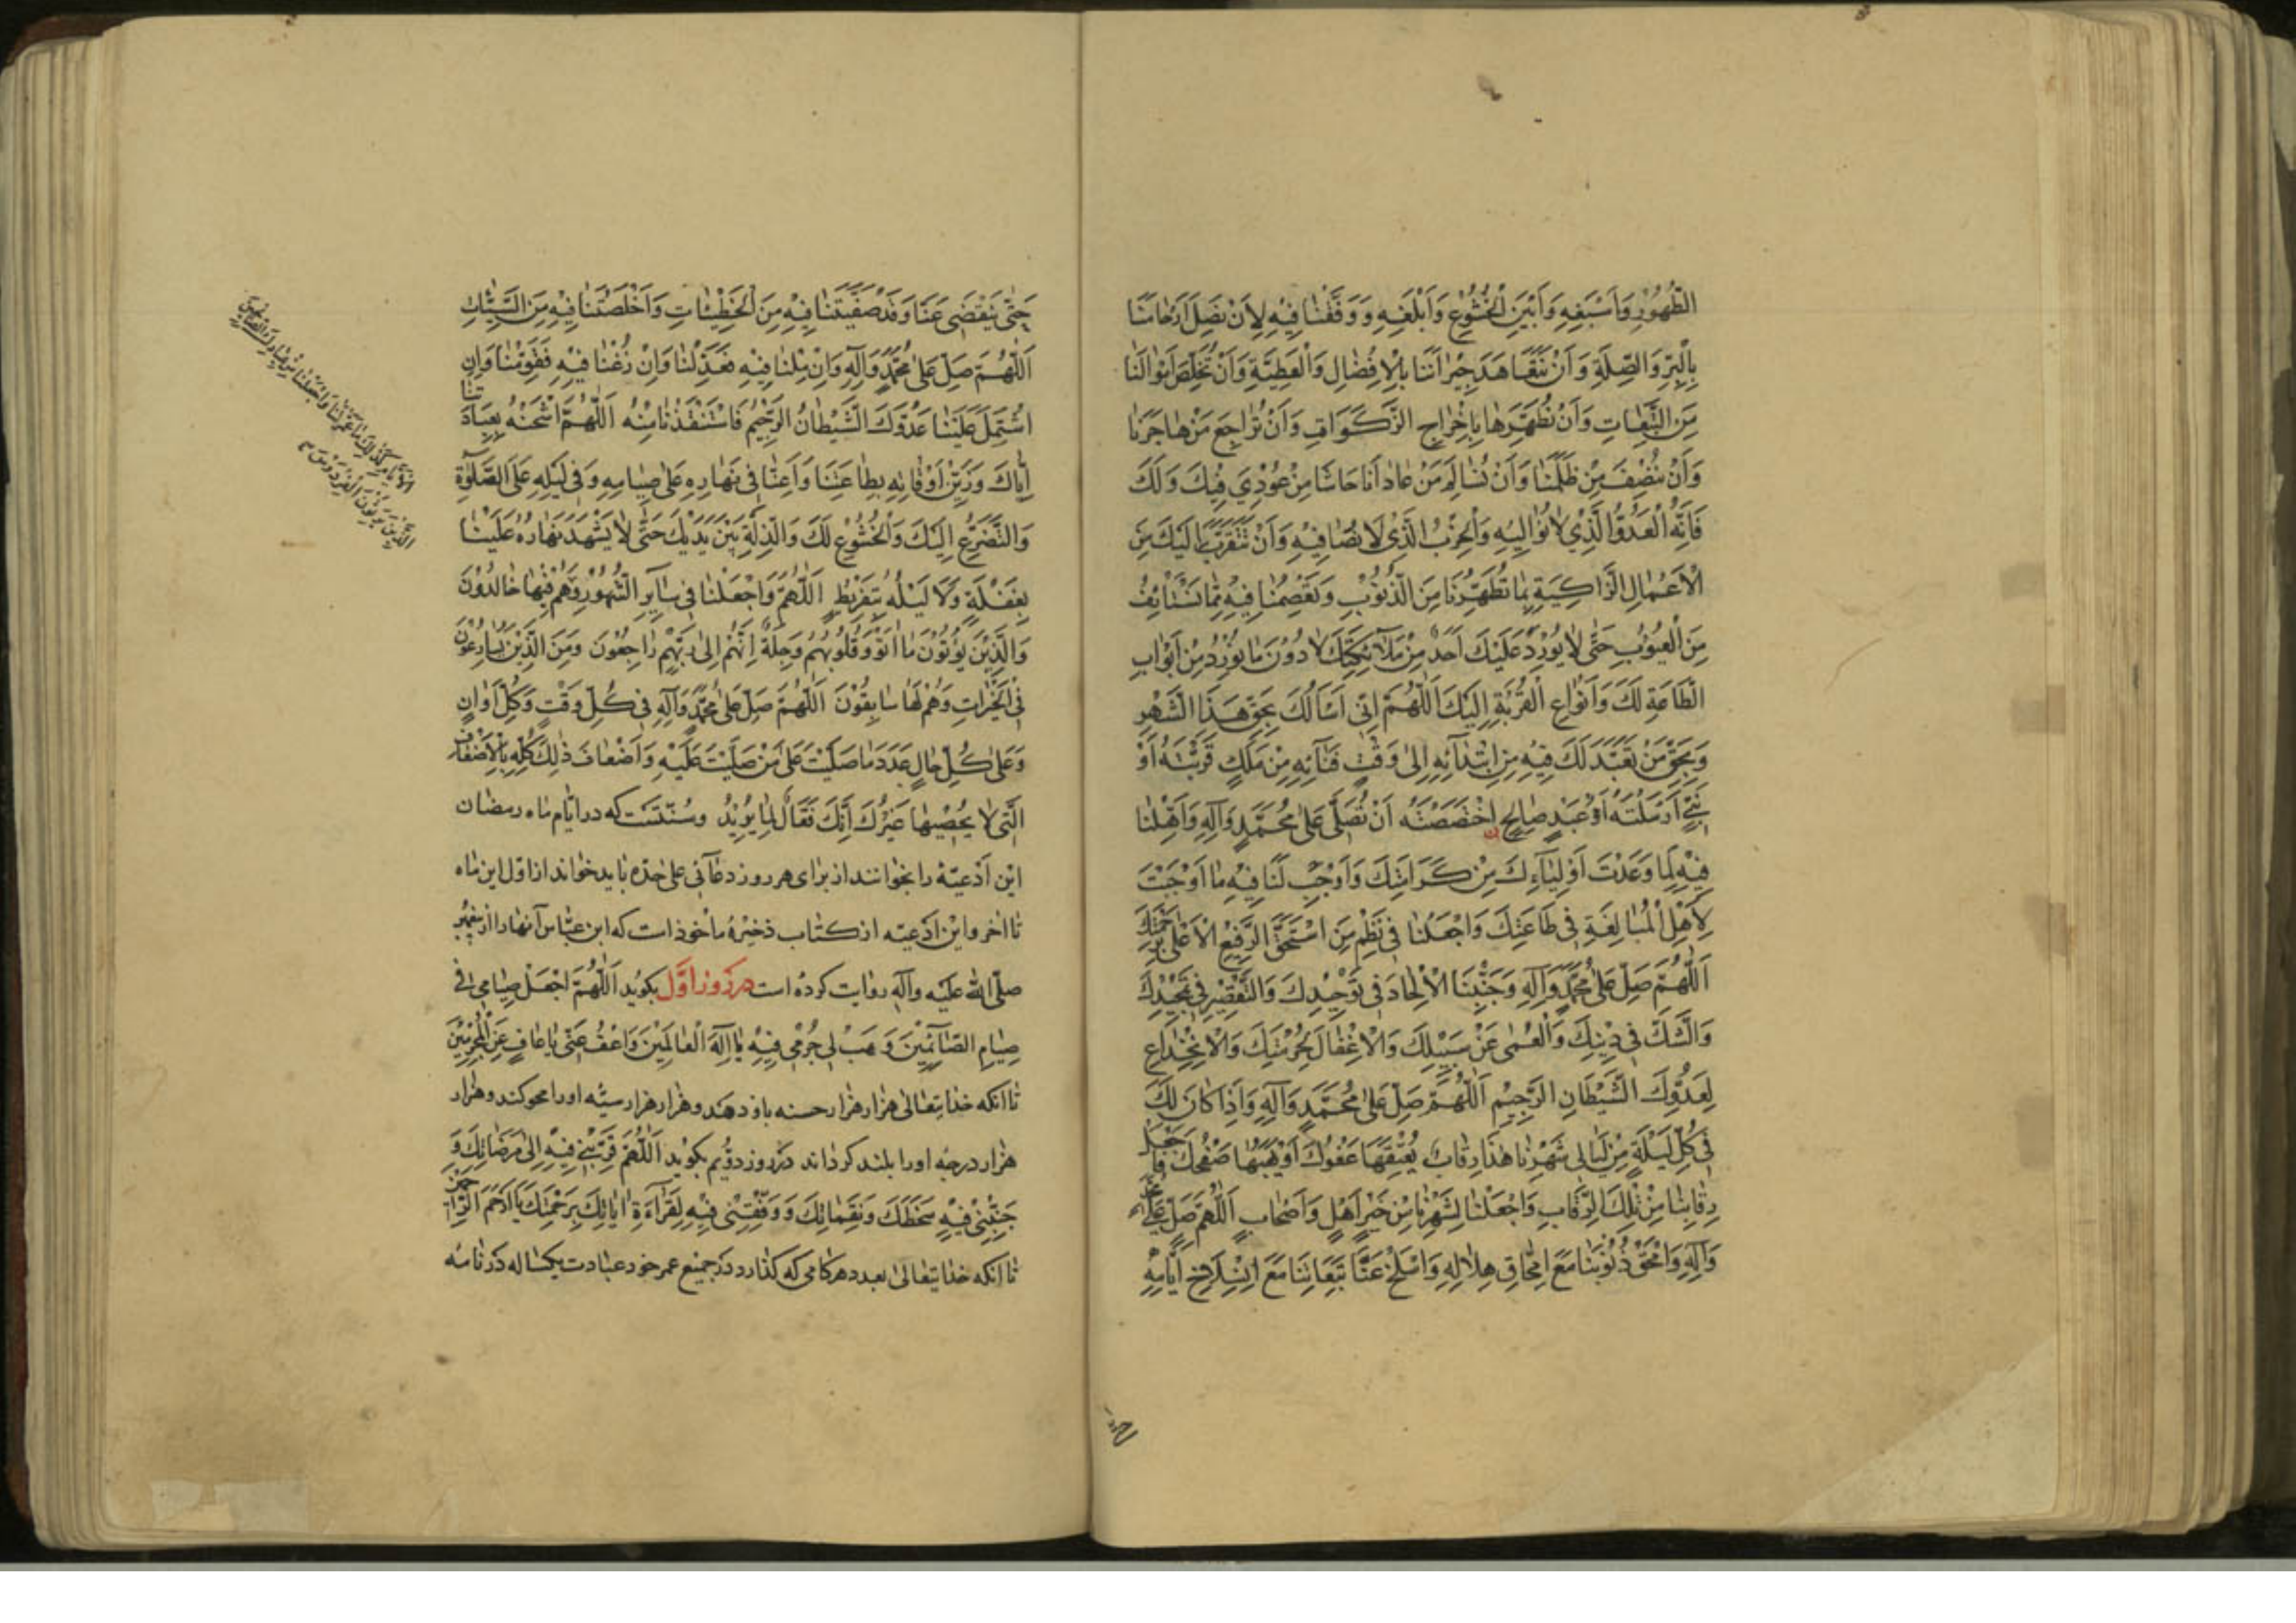 الطُّهُوْرِ وَاَسْبَغِهِ وَاَبْيَنِ الْخُشُوْعِ وَاَبْلَغِهِ وَ وَفِّقْنٰا فِيْهِ لِاَنْ نَصِلَ اَرْحٰامَنٰا
بِالْبِرِّ وَالصِّلَةِ وَ اَنْ نَتَعٰاهَدَ جِيْرٰانَنٰا بِالْاِفْضٰالِ وَالْعَطِيَّةِ وَ اَنْ نُخَلِّصَ اَمْوٰالَنٰا
مِنَ التَّبِعٰاتِ وَ اَنْ نُطَهِّرَهٰا بِاِخْرٰاجِ الزَّكَوٰاتِ وَ اَنْ نُرٰاجِعَ مَنْ هٰاجَرَنٰا
وَ اَنْ نُنْصِفَ مَنْ ظَلَمَنٰا وَ اَنْ نُسٰالِمَ مَنْ عٰادٰانٰا حٰاشٰا مَنْ عُوْدِيَ فِيْكَ وَ لَكَ
فَاِنَّهُ الْعَدُوُّ الَّذِيْ لاٰ نُوٰالِيْهِ وَالْحِزْبُ الَّذِيْ لاٰ نُصٰافِيْهِ وَ اَنْ نَتَقَرَّبَ اِلَيْكَ مِنَ
الْاَعْمٰالِ الزّٰاكِيَةِ بِمٰا تُطَهِّرُنٰا مِنَ الذُّنُوْبِ وَ تَعْصِمُنٰا فِيْهِ مِمّٰا نَسْتَأْنِفُ
مِنَ الْعُيُوْبِ حَتّٰى لاٰ يُوْرِدَ عَلَيْكَ اَحَدٌ مِنْ مَلاٰئِكَتِكَ اِلاّٰ دُوْنَ مٰا نُوْرِدُ مِنْ اَبْوٰابِ
الْطّٰاعَةِ لَكَ وَ اَنْوٰاعِ الْقُرْبَةِ اِلَيْكَ اَللّٰهُمَّ اِنّي اَسْأَلُكَ بِحَقِّ هٰذَا الشَّهْرِ
وَ بِحَقِّ مَنْ تَعَبَّدَ لَكَ فِيْهِ مِنِ ابْتِدٰائِهِ اِلىٰ وَقْتِ فَنٰائِهِ مِنْ مَلَكٍ قَرَّبْتَهُ اَوْ
نَبِيٍّ اَرْسَلْتَهُ اَوْ عَبْدٍ صٰالِحٍ اخْتَصَصْتَهُ اَنْ تُصَلِّيَ عَلىٰ مُحَمَّدٍ وَآلِهِ وَاَهِّلْنٰا
فِيْهِ لِمٰا وَعَدْتَ اَوْلِيٰاءَكَ مِنْ كَرٰامَتِكَ وَ اَوْجِبْ لَنٰا فِيْهِ مٰا اَوْجَبْتَ
لِاَهْلِ الْمُبٰالَغَةِ فِي طٰاعَتِكَ وَاجْعَلْنٰا فِي نَظْمِ مَنِ اسْتَحَقَّ الرَّفِيْعَ الْاَعْلىٰ بِرَحْمَتِكَ
اَللّٰهُمَّ صَلِّ عَلىٰ مُحَمَّدٍ وَآلِهِ وَ جَنِّبْنَا الْاِلْحٰادَ فِي تَوْحِيْدِكَ وَالتَّقْصِيْرَ فِي تَمْجِيْدِكَ
وَالشَّكَّ فِي دِيْنِكَ وَالْعَمٰى عَنْ سَبِيْلِكَ وَالْاِغْفٰالَ لِحُرْمَتِكَ وَالْاِنْخِدٰاعِ
لِعَدُوِّكَ الشَّيْطٰانِ الرَّجِيْمِ اَللّٰهُمَّ صَلِّ عَلىٰ مُحَمَّدٍ وَآلِهِ وَ اِذٰا كٰانَ لَكَ
فِي كُلِّ لَيْلَةٍ مِنْ لَيٰالِي شَهْرِنٰا هٰذٰا رِقٰابٌ يُعْتِقُهٰا عَفْوُكَ اَوْ يَهَبُهٰا صَفْحُكَ فَاجْعَلْ
رِقٰابَنٰا مِنْ تِلْكَ الرِّقٰابِ وَاجْعَلْنٰا لِشَهْرِنٰا مِنْ خَيْرِ اَهْلٍ وَ اَصْحٰابٍ اَللّٰهُمَّ صَلِّ عَلىٰ مُحَمَّدٍ
وَآلِهِ وَامْحَقْ ذُنُوْبَنٰا مَعَ امِّحٰاقِ هِلاٰلِهِ وَاسْلَخْ عَنّٰا تَبِعٰاتِنٰا مَعَ انْسِلاٰخِ اَيّٰامِهِ
حَتّٰى يَنْقَضِيَ عَنّٰا وَ قَدْ صَفَّيْتَنٰا فِيْهِ مِنَ الْخَطِيْئٰاتِ وَ اَخْلَصْتَنٰا فِيْهِ مِنَ السَّيِّئٰاتِ
اَللّٰهُمَّ صَلِّ عَلىٰ مُحَمَّدٍ وَآلِهِ وَ اِنْ مِلْنٰا فِيْهِ فَعَدِّلْنٰا وَ اِنْ زُغْنٰا فِيْهِ فَقَوِّمْنٰا وَ اِنِ
اشْتَمَلَ عَلَيْنٰا عَدُوُّكَ الشَّيْطٰانُ الرَّجِيْمُ فَاسْتَنْقِذْنٰا مِنْهُ اَللّٰهُمَّ اشْحَنْهُ بِعِبٰادَتِنٰا
اِيّٰاكَ وَ زَيِّنْ اَوْقٰاتَهُ بِطٰاعَتِنٰا وَ اَعِنّٰا فِي نَهٰارِهِ عَلىٰ صِيٰامِهِ وَ فِي لَيْلِهِ عَلَى الصَّلوٰةِ
وَ التَّضَرُّعِ اِلَيْكَ وَالْخُشُوْعِ لَكَ وَالذِّلَّةِ بَيْنَ يَدَيْكَ حَتّٰى لاٰ يَشْهَدَ نَهٰارُهُ عَلَيْنٰا
بِغَفْلَةٍ وَ لاٰ لَيْلُهُ بِتَفْرِيْطٍ اَللّٰهُمَّ وَاجْعَلْنٰا فِي سٰائِرِ الشُّهُوْرِ وَ هُمْ فِيْهٰا خٰالِدُوْنَ
وَ الَّذِيْنَ يُؤْتُوْنَ مٰا اٰتَوْا وَ قُلُوْبُهُمْ وَجِلَةٌ اَنَّهُمْ اِلىٰ رَبِّهِمْ رٰاجِعُوْنَ وَ مِنَ الَّذِيْنَ يُسٰارِعُوْنَ
فِي الْخَيْرٰاتِ وَ هُمْ لَهٰا سٰابِقُوْنَ اَللّٰهُمَّ صَلِّ عَلىٰ مُحَمَّدٍ وَآلِهِ فِي كُلِّ وَقْتٍ وَ كُلِّ اَوٰانٍ
وَ عَلىٰ كُلِّ حٰالٍ عَدَدَ مٰا صَلَّيْتَ عَلىٰ مَنْ صَلَّيْتَ عَلَيْهِ وَ اَضْعٰافَ ذٰلِكَ كُلِّهِ بِالْاَضْعٰافِ
الَّتِي لاٰ يُحْصِيْهٰا غَيْرُكَ اِنَّكَ فَعّٰالٌ لِمٰا يُرِيْدُ و سُنّتست كه در ايّام ماه رمضان
اين اَدْعيَهْ را بخوانند از براى هر روز دعآئى على حدّه بايد خواند از اوّل اين ماه
تا آخر و اين اَدْعيَه از كتاب ذخيره مأخوذ است كه ابن عبّاس آنها را از پيغمبر
صلّى الله عليه وآله روايت كرده است در روز اوّل بكويد اَللّٰهُمَّ اجْعَلْ صِيٰامِي فِي
صِيٰامِ الصّٰائِمِيْنَ وَ هَبْ لِي جُرْمِي فِيْهِ يٰا اِلٰهَ الْعٰالَمِيْنَ وَ اعْفُ عَنِّي يٰا عٰافِ عَنِ الْمُجْرِمِيْنَ
تا آنكه خدايتعالى هزار هزار حسنه باو دهد و هزار هزار سيّئه او را محو كند و هزار
هزار درجه او را بلند كرداند در روز دوّيم بكويد اَللّٰهُمَّ قَرِّبْنِي فِيْهِ اِلىٰ مَرْضٰاتِكَ وَ
جَنِّبْنِي فِيْهِ سَخَطَكَ وَ نَقِمٰاتِكَ وَ وَفِّقْنِي فِيْهِ لِقِرٰاءَةِ اٰيٰاتِكَ بِرَحْمَتِكَ يٰا اَرْحَمَ الرّٰاحِمِيْنَ
تا آنكه خدايتعالى بعدد هر كامى كه كذارد در جميع عمر خود عبادت يكساله كه در نامه
وَ الْاَيّٰامِ كَذٰلِكَ مٰا عَمَّرْتَنٰا وَاجْعَلْنٰا مِنْ عِبٰادِكَ الصّٰالِحِيْنَ
الَّذِيْنَ يَرِثُوْنَ الْفِرْدَوْسَ